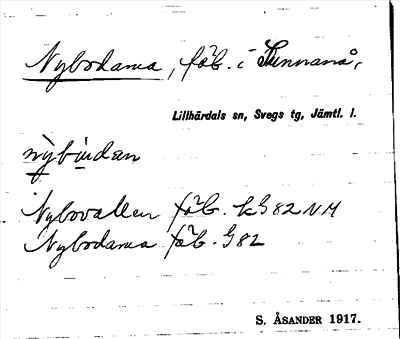 Nybodarna, fäb. i Sunnanå,
Lillhärdals sn, Svegs tg, Jämtl. l.
Nybovallen fäb. kG82NM
Nybodarna fäb. G82
S. ÅSANDER 1917.